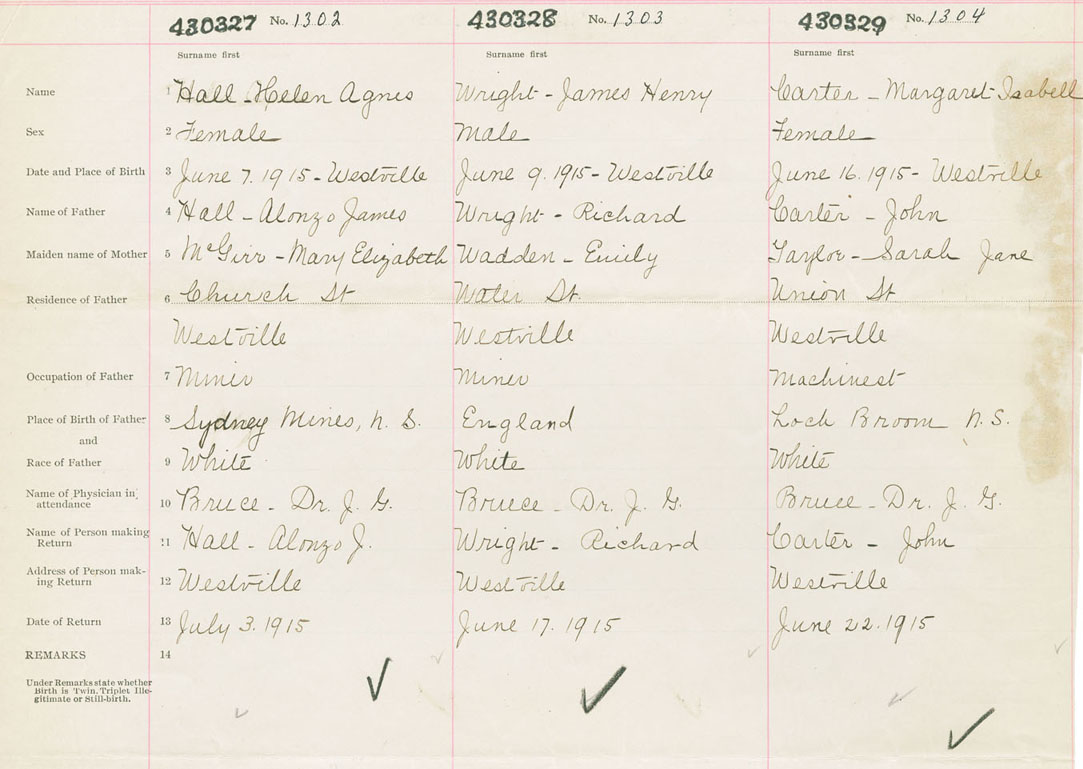 430327 No. 1302 430328 No. 1303 430329 No. 1304
Surname first Surname first Surname first
Name 1 Hall - Helen Agnes Wright - James Henry Carter - Margaret Isabell
Sex 2 Female Male Female
Date and Place of Birth 3 June 7. 1915 - Westville June 9. 1915 - Westville June 16. 1915 - Westville
Name of Father 4 Hall - Alonzo James Wright - Richard Carter - John
Maiden name of Mother 5 McGirr - Mary Elizabeth Wadden - Emily Taylor - Sarah Jane
Residence of Father 6 Church St Water St. Union St
Westville Westville Westville
Occupation of Father 7 Miner Miner Machinest
Place of Birth of Father 8 Sydney Mines, N. S. England Loch Broom N. S.
and
Race of Father 9 White White White
Name of Physician in
attendance 10 Bruce - Dr. J. G. Bruce - Dr. J. G. Bruce - Dr. J. G.
Name of Person making
Return 11 Hall - Alonzo J. Wright - Richard Carter - John
Address of Person mak-
ing Return 12 Westville Westville Westville
Date of Return 13 July 3. 1915 June 17. 1915 June 22. 1915
REMARKS 14
Under Remarks state whether
Birth is Twin, Triplet Ille-
gitimate or Still-birth.